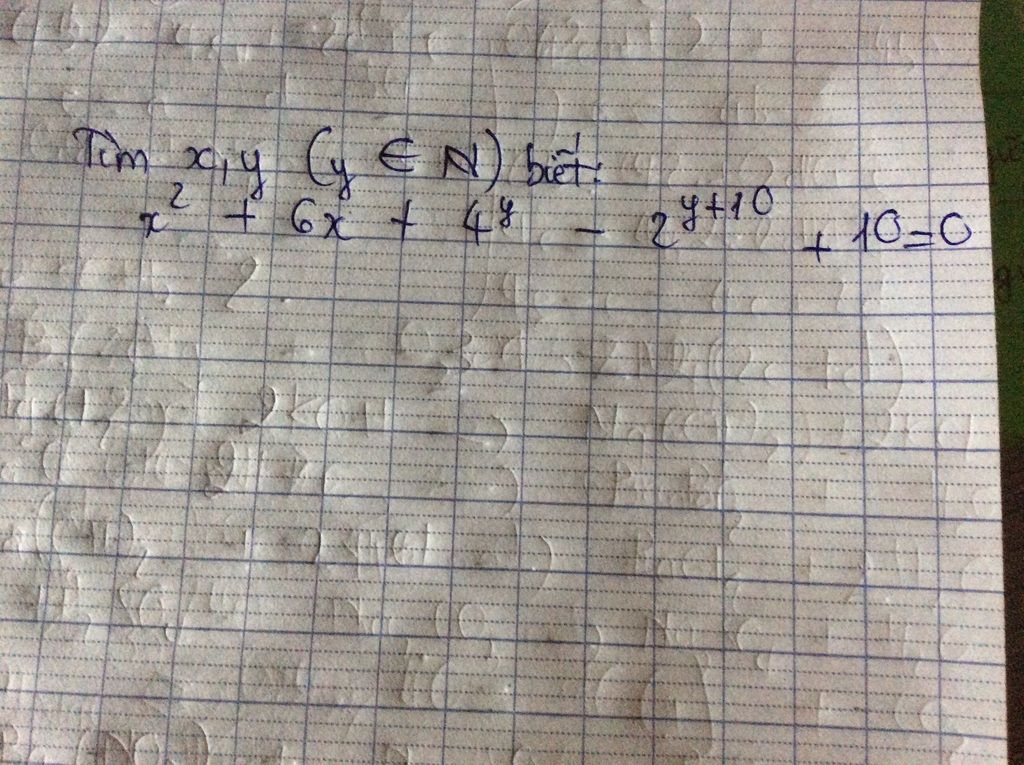 Tìm x, y (y ∈ N) biết:
x² + 6x + 4^y - 2^{y+10} + 10 = 0